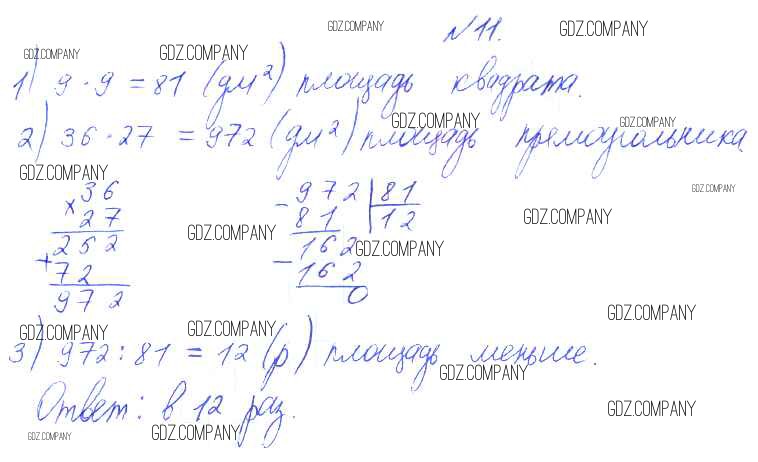 GDZ.COMPANY GDZ.COMPANY
№11.
GDZ.COMPANY GDZ.COMPANY
1) 9 · 9 = 81 (дм²) площадь квадрата.
GDZ.COMPANY GDZ.COMPANY
2) 36 · 27 = 972 (дм²) площадь прямоугольника
GDZ.COMPANY GDZ.COMPANY
× 36 - 972 | 81
27 81 12
GDZ.COMPANY GDZ.COMPANY
252 162
GDZ.COMPANY
+ 72 - 162
972 0
GDZ.COMPANY
GDZ.COMPANY GDZ.COMPANY
3) 972 : 81 = 12 (р) площадь меньше.
GDZ.COMPANY
Ответ: в 12 раз.
GDZ.COMPANY
GDZ.COMPANY GDZ.COMPANY